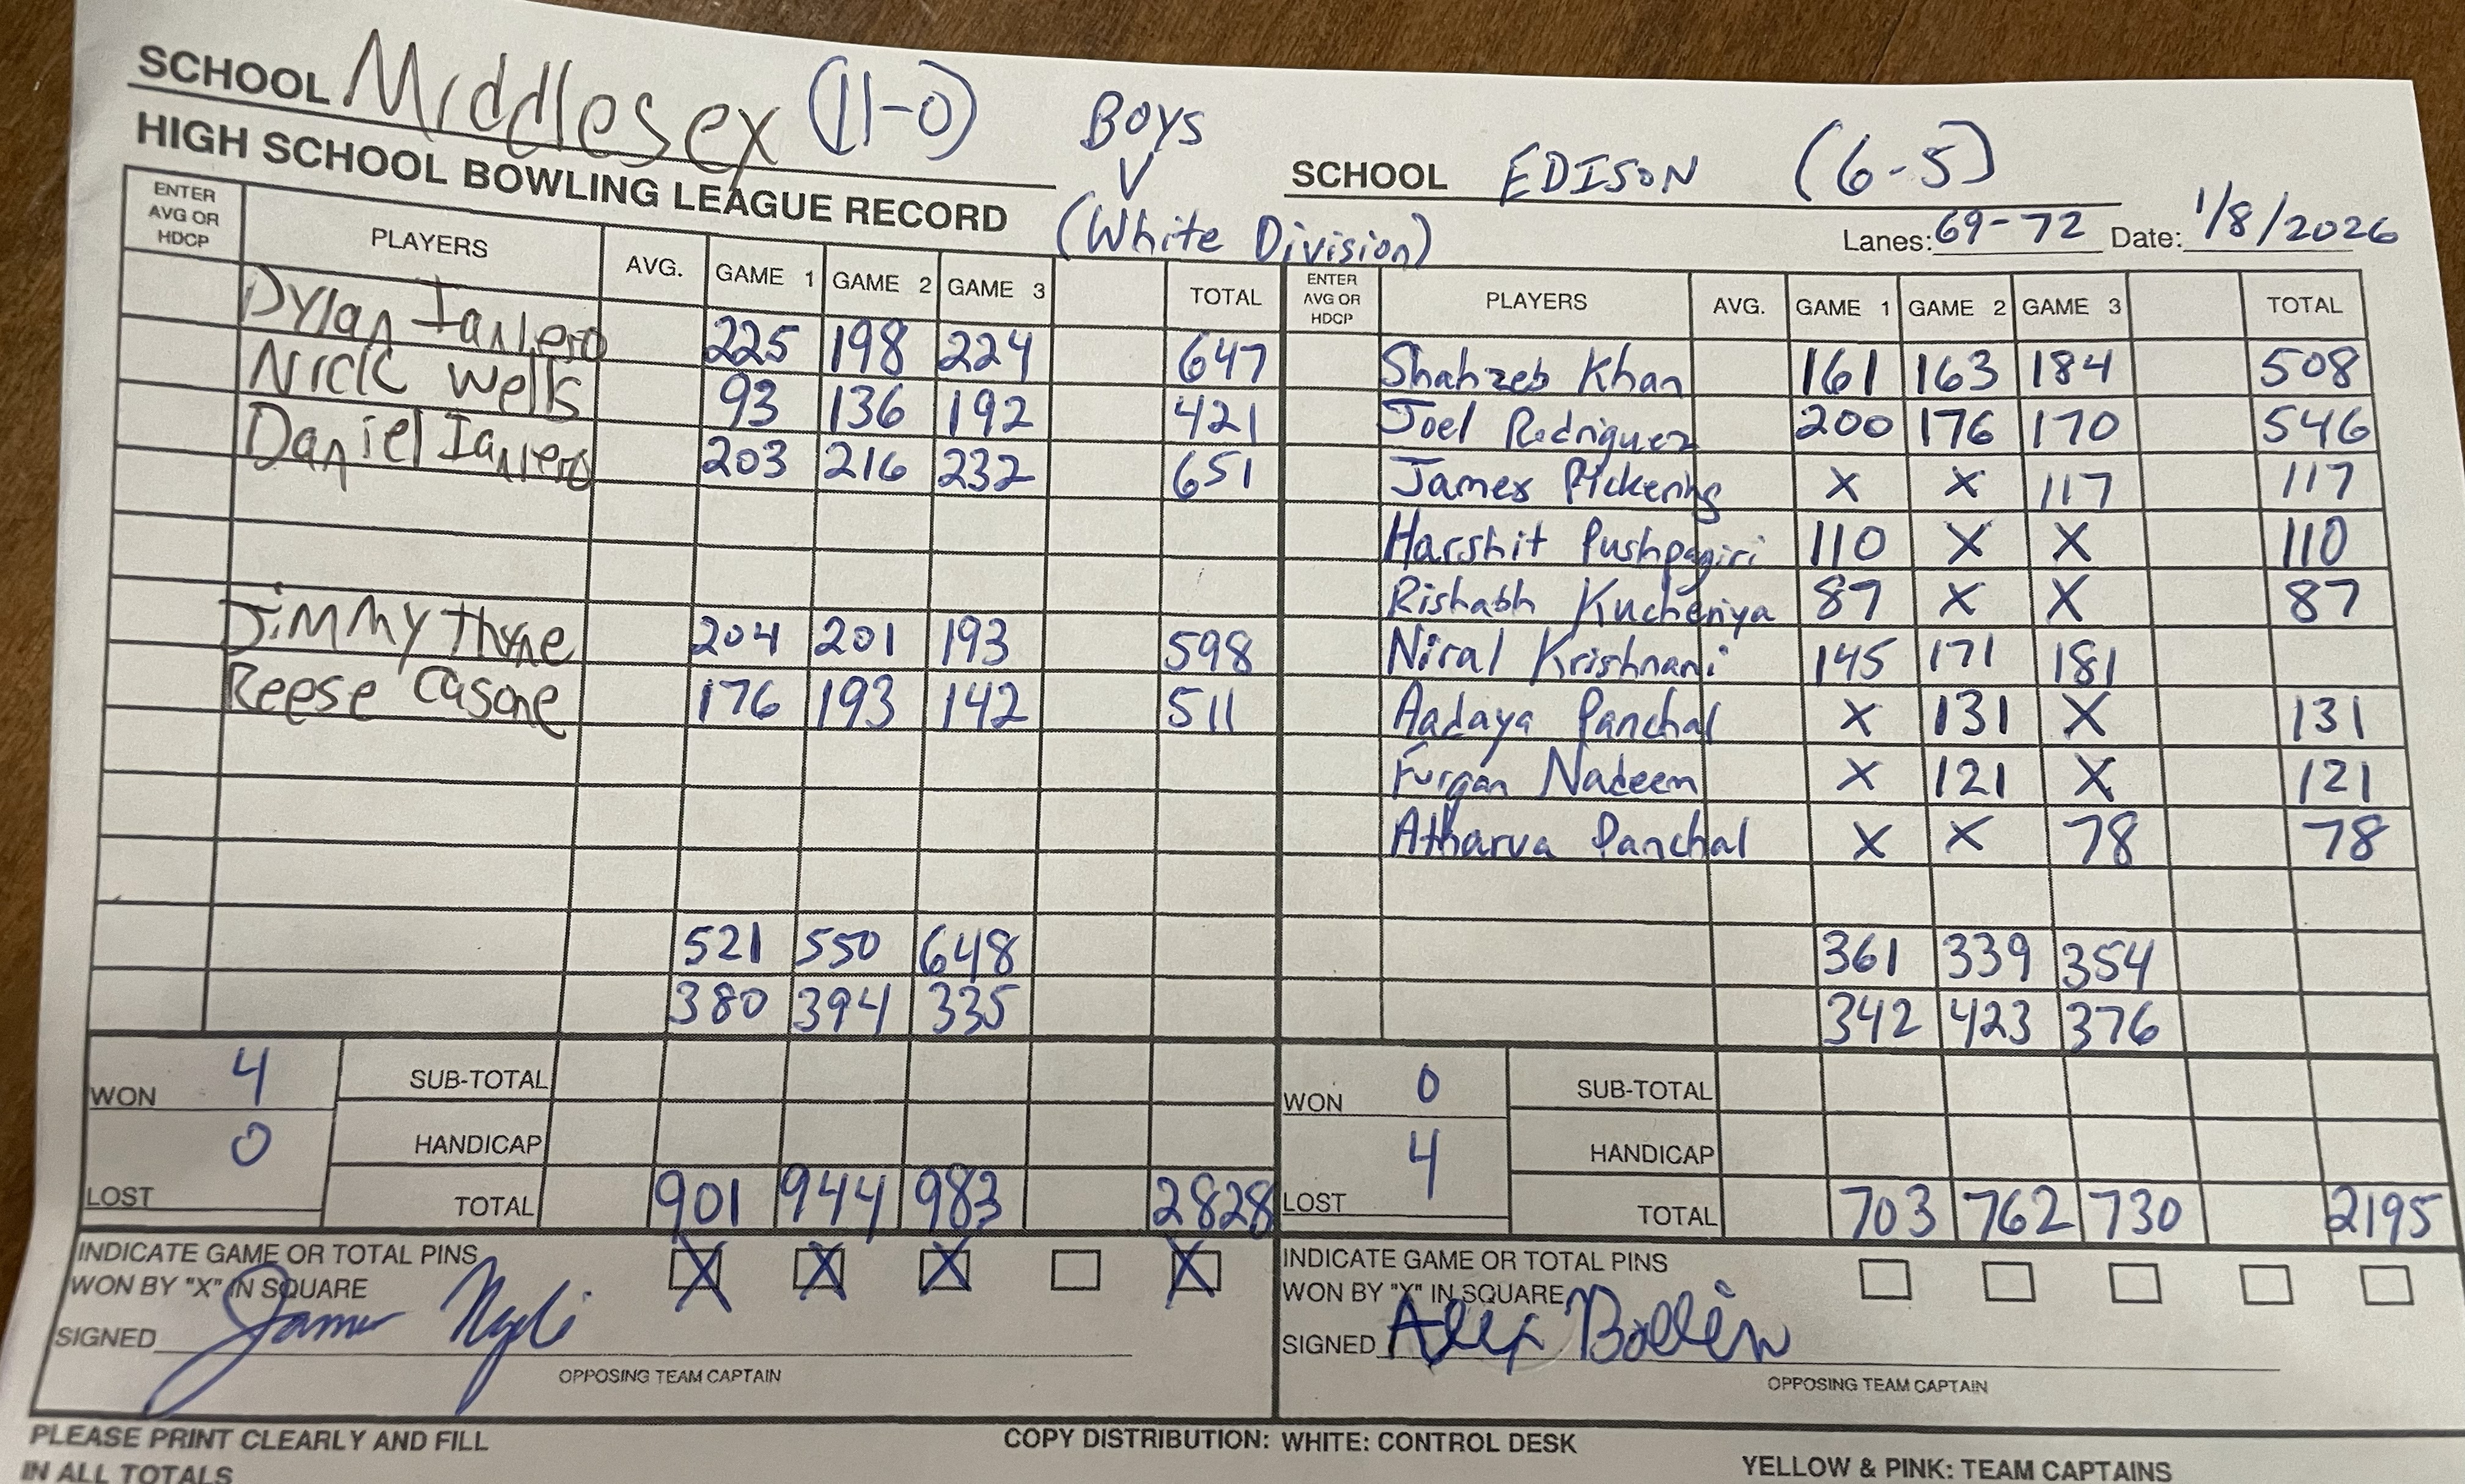 SCHOOL Middlesex (11-0)
Boys
V
(White Division)
HIGH SCHOOL BOWLING LEAGUE RECORD
SCHOOL EDISON (6-5)
Lanes: 69-72 Date: 1/8/2026
ENTER AVG OR HDCP PLAYERS AVG. GAME 1 GAME 2 GAME 3 TOTAL
Dylan Ianiero 225 198 224 647
Nick Wells 93 136 192 421
Daniel Ianiero 203 216 232 651
Jimmy Thyne 204 201 193 598
Reese Casone 176 193 142 511
521 550 648
380 394 335
WON 4
LOST 0
SUB-TOTAL
HANDICAP
TOTAL 901 944 983 2828
INDICATE GAME OR TOTAL PINS
WON BY "X" IN SQUARE X X X X
SIGNED
OPPOSING TEAM CAPTAIN
ENTER AVG OR HDCP PLAYERS AVG. GAME 1 GAME 2 GAME 3 TOTAL
Shahzeb Khan 161 163 184 508
Joel Rodriguez 200 176 170 546
James Pickering X X 117 117
Harshit Pushpagiri 110 X X 110
Rishabh Kucheriya 87 X X 87
Niral Krishnani 145 171 181
Aadaya Panchal X 131 X 131
Furqan Nadeem X 121 X 121
Atharva Panchal X X 78 78
361 339 354
342 423 376
WON 0
LOST 4
SUB-TOTAL
HANDICAP
TOTAL 703 762 730 2195
INDICATE GAME OR TOTAL PINS
WON BY "X" IN SQUARE
SIGNED Alex
OPPOSING TEAM CAPTAIN
PLEASE PRINT CLEARLY AND FILL
IN ALL TOTALS
COPY DISTRIBUTION: WHITE: CONTROL DESK
YELLOW & PINK: TEAM CAPTAINS